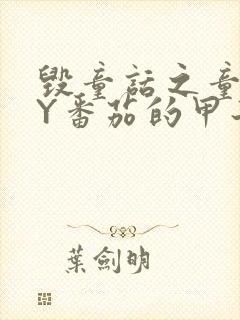 毁童话之童
Y番茄的甲
葉劍明